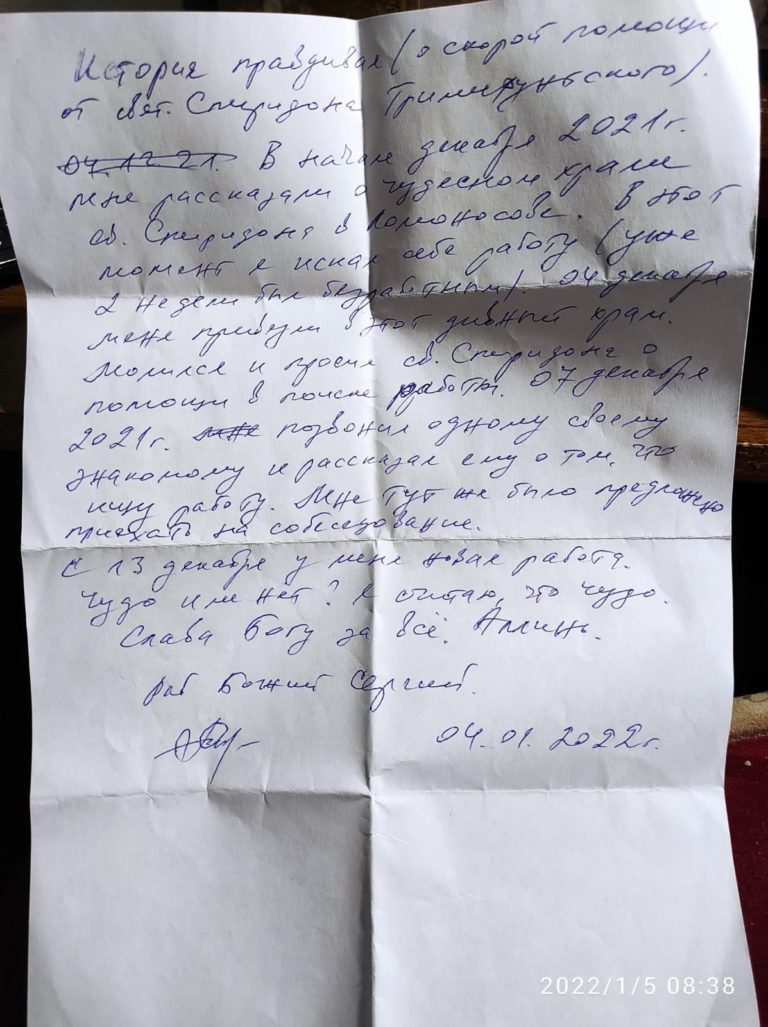 История правдивая (о скорой помощи
от свят. Спиридона Тримифунтского).
04.12.21. В начале декабря 2021г.
мне рассказали о чудесном храме
св. Спиридона в Ломоносове. В этот
момент я искал себе работу (уже
2 недели был безработным). 04 декабря
меня привезли в этот дивный храм.
Молился и просил св. Спиридона о
помощи в поиске работы. 07 декабря
2021г. мне позвонил одному своему
знакомому и рассказал ему о том, что
ищу работу. Мне тут же было предложено
приехать на собеседование.
С 13 декабря у меня новая работа.
Чудо или нет? Я считаю, что чудо.
Слава Богу за всё. Аминь.
Раб Божий Сергий.
04.01.2022г.
2022/1/5 08:38